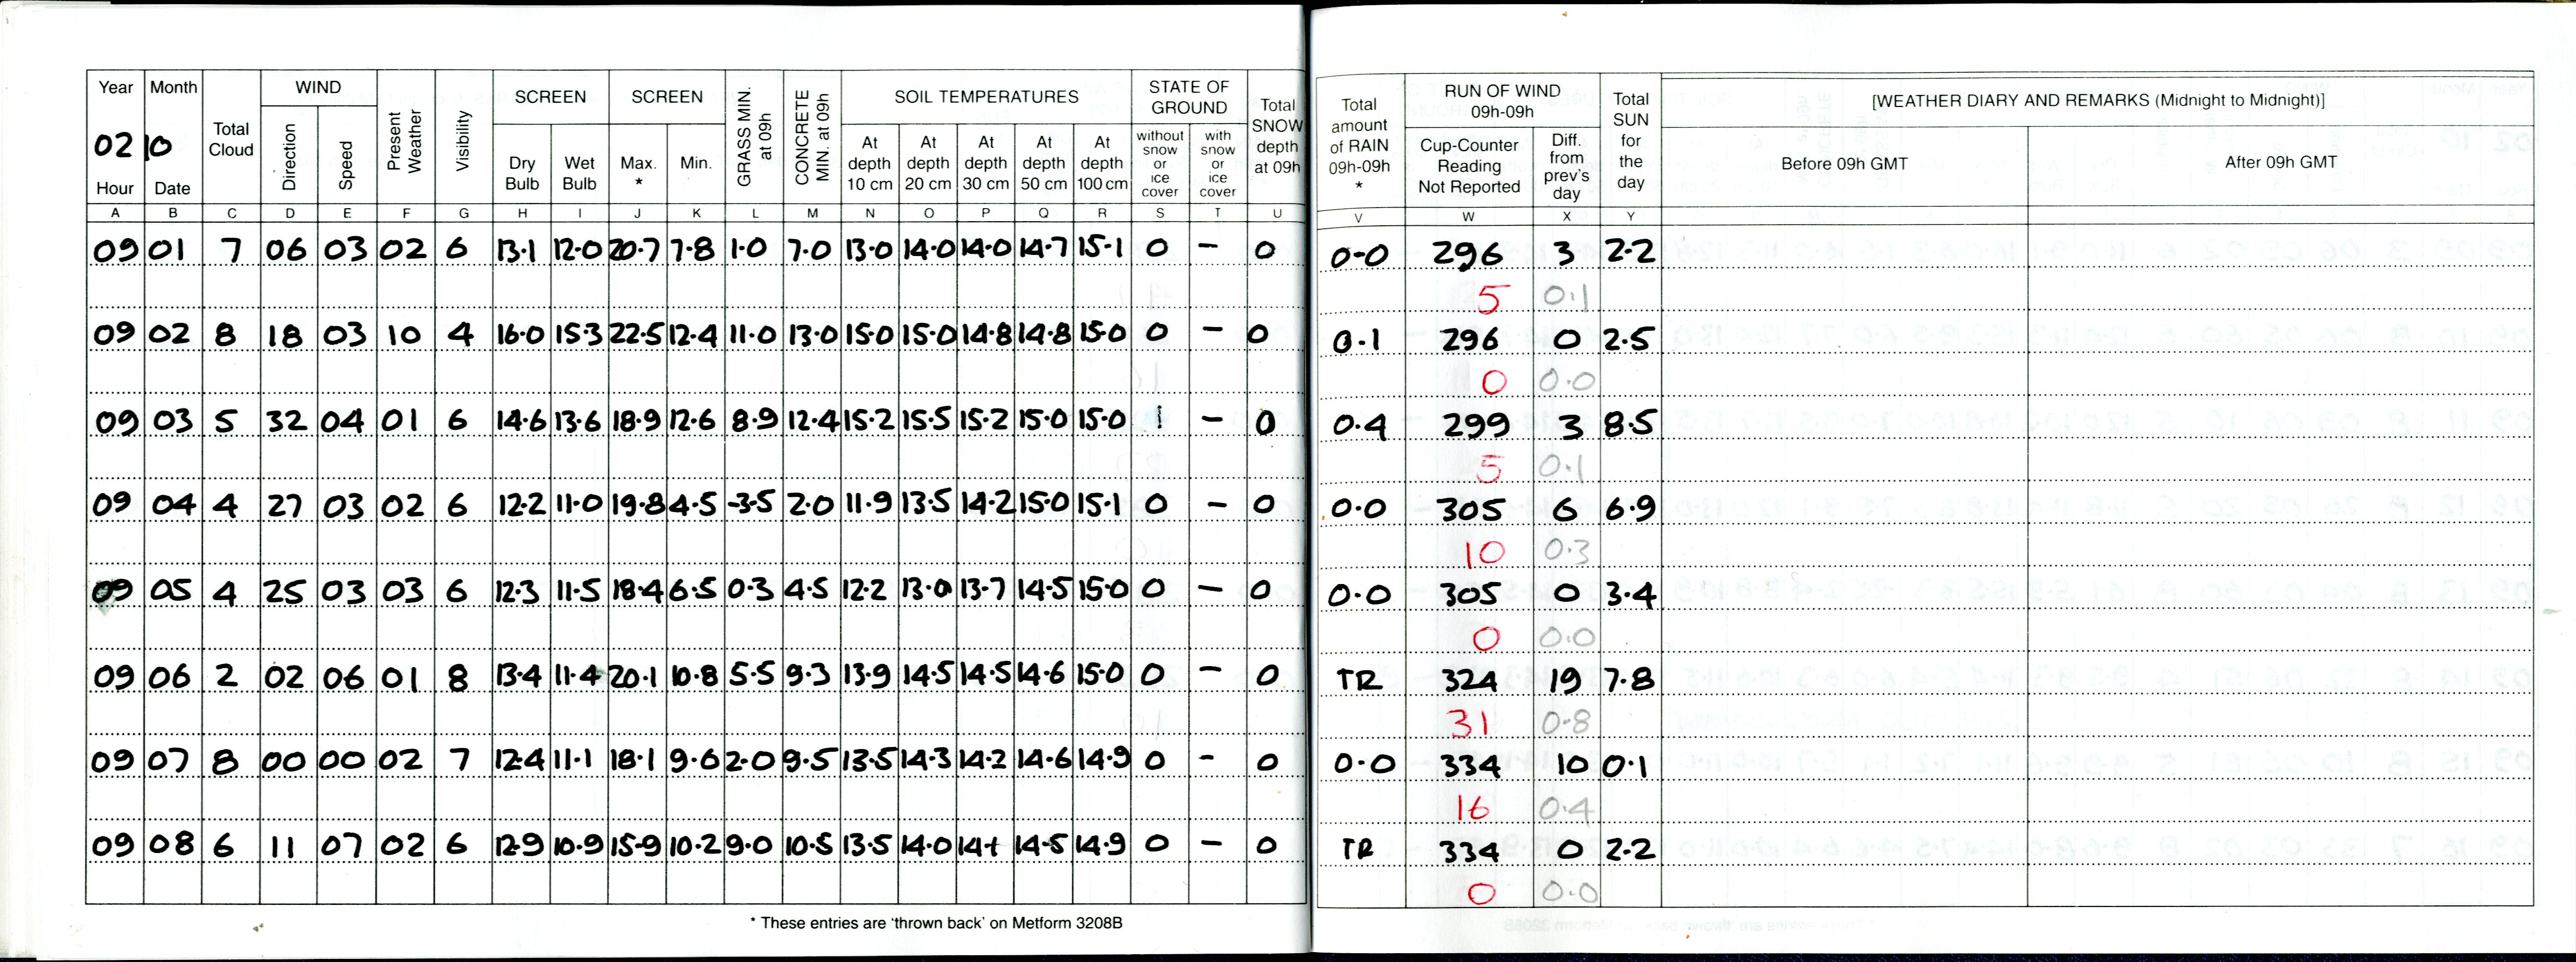 Year Month Total Cloud WIND Present Weather Visibility SCREEN SCREEN GRASS MIN. at 09h CONCRETE MIN. at 09h SOIL TEMPERATURES STATE OF GROUND Total SNOW depth at 09h Total amount of RAIN 09h-09h * RUN OF WIND 09h-09h Total SUN for the day [WEATHER DIARY AND REMARKS (Midnight to Midnight)]
02 10
Hour Date Direction Speed Dry Bulb Wet Bulb Max. * Min. At depth 10 cm At depth 20 cm At depth 30 cm At depth 50 cm At depth 100 cm without snow or ice cover with snow or ice cover Cup-Counter Reading Not Reported Diff. from prev's day Before 09h GMT After 09h GMT
A B C D E F G H I J K L M N O P Q R S T U V W X Y
09 01 7 06 03 02 6 13.1 12.0 20.7 7.8 1.0 7.0 13.0 14.0 14.0 14.7 15.1 0 - 0 0.0 296 3 2.2
5 0.1
09 02 8 18 03 10 4 16.0 15.3 22.5 12.4 11.0 13.0 15.0 15.0 14.8 14.8 15.0 0 - 0 0.1 296 0 2.5
0 0.0
09 03 5 32 04 01 6 14.6 13.6 18.9 12.6 8.9 12.4 15.2 15.5 15.2 15.0 15.0 1 - 0 0.4 299 3 8.5
5 0.1
09 04 4 27 03 02 6 12.2 11.0 19.8 4.5 -3.5 2.0 11.9 13.5 14.2 15.0 15.1 0 - 0 0.0 305 6 6.9
10 0.3
09 05 4 25 03 03 6 12.3 11.5 18.4 6.5 0.3 4.5 12.2 13.0 13.7 14.5 15.0 0 - 0 0.0 305 0 3.4
0 0.0
09 06 2 02 06 01 8 13.4 11.4 20.1 10.8 5.5 9.3 13.9 14.5 14.5 14.6 15.0 0 - 0 TR 324 19 7.8
31 0.8
09 07 8 00 00 02 7 12.4 11.1 18.1 9.6 2.0 9.5 13.5 14.3 14.2 14.6 14.9 0 - 0 0.0 334 10 0.1
16 0.4
09 08 6 11 07 02 6 12.9 10.9 15.9 10.2 9.0 10.5 13.5 14.0 14.5 14.9 0 - 0 TR 334 0 2.2
0 0.0
* These entries are 'thrown back' on Metform 3208B